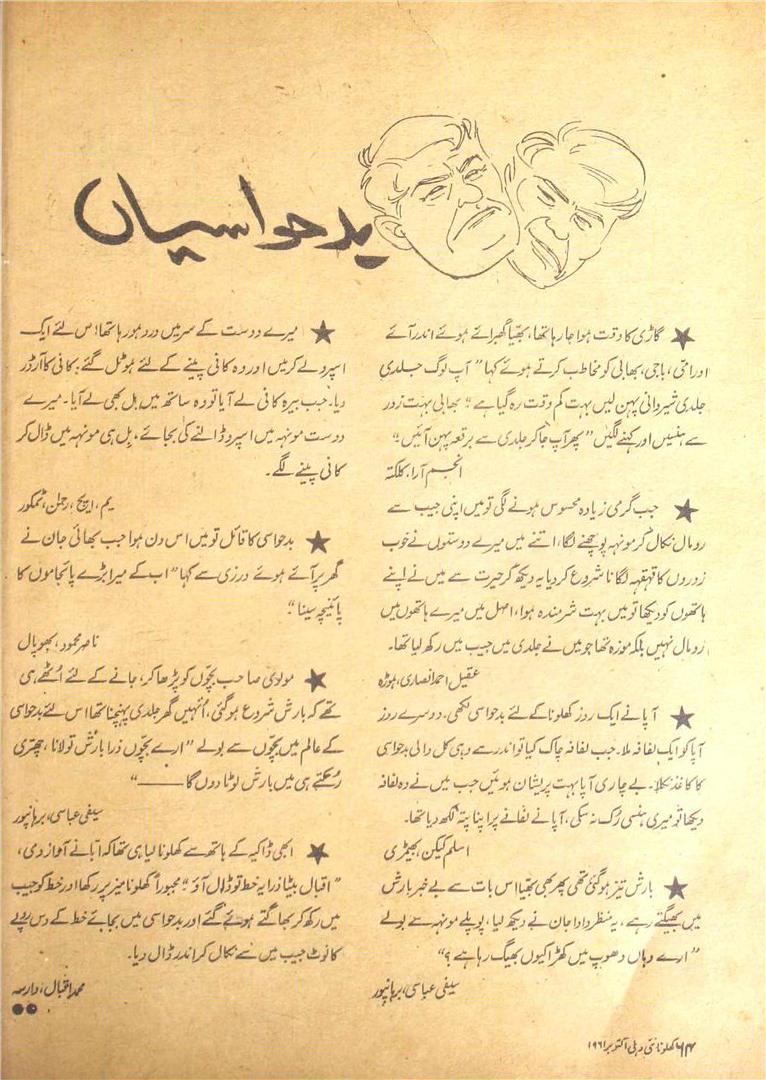 بدحواسیاں
گاڑی کا وقت ہوا جا رہا تھا، بھیّا گھبرائے ہوئے اندر آئے
اور امّی، باجی، بھابی کو مخاطب کرتے ہوئے کہا "آپ لوگ جلدی
جلدی شیروانی پہن لیں بہت کم وقت رہ گیا ہے"؛ بھابی بہت زور
سے ہنسیں اور کہنے لگیں "پھر آپ جا کر جلدی سے برقعہ پہن آئیں"؛
انجم آرا، کلکتہ
جب گرمی زیادہ محسوس ہونے لگی تو میں اپنی جیب سے
رومال نکال کر مونہہ پوچھنے لگا، اتنے میں میرے دوستوں نے خوب
زوروں کا قہقہہ لگانا شروع کر دیا یہ دیکھ کر حیرت سے میں نے اپنے
ہاتھوں کو دیکھا تو میں بہت شرمندہ ہوا، اصل میں میرے ہاتھوں میں
رومال نہیں بلکہ موزہ تھا جو میں نے جلدی میں جیب میں رکھ لیا تھا۔
عقیل احمد انصاری، ہوڑہ
آپا نے ایک روز کھلونا کے لئے بدحواسی لکھی۔ دوسرے روز
آپا کو ایک لفافہ ملا۔ جب لفافہ چاک کیا تو اندر سے وہی کل والی بدحواسی
کا کاغذ نکلا۔ بے چاری آپا بہت پریشان ہوئیں جب میں نے وہ لفافہ
دیکھا تو میری ہنسی رُک نہ سکی، آپا نے لفافے پر اپنا پتہ لکھ دیا تھا۔
اسلم
بارش تیز ہو گئی تھی پھر بھی بھیّا اس بات سے بے خبر بارش
میں بھیگتے رہے، یہ منظر دادا جان نے دیکھ لیا، پوپلے مونہہ سے بولے
"ارے وہاں دھوپ میں کھڑا کیوں بھیگ رہا ہے؟"
سیفی عباسی، برہانپور
میرے دوست کے سر میں درد ہو رہا تھا؛ اس لئے ایک
اسپرو لے کر میں اور وہ کافی پینے کے لئے ہوٹل گئے؛ کافی کا آرڈر
دیا۔ جب بیرہ کافی لے آیا تو وہ ساتھ میں بل بھی لے آیا۔ میرے
دوست مونہہ میں اسپرو ڈالنے کی بجائے، بِل ہی مونہہ میں ڈال کر
کافی پینے لگے۔
یم، ایچ، رحمٰن، ٹمکور
بدحواسی کا قائل تو میں اس دن ہوا جب بھائی جان نے
گھر پر آئے ہوئے درزی سے کہا "اب کے میرا بڑے پائجاموں کا
پائنچہ سینا"؛
ناصر محمود، بھوپال
مولوی صاحب بچّوں کو پڑھا کر، جانے کے لئے اُٹھے ہی
تھے کہ بارش شروع ہو گئی، اُنہیں گھر جلدی پہنچنا تھا اس لئے بدحواسی
کے عالم میں بچّوں سے بولے "ارے بچّوں ذرا بارش تو لانا، چھتری
رُکتے ہی میں بارش لوٹا دوں گا ——"
سیفی عباسی، برہانپور
ابھی ڈاکیہ کے ہاتھ سے کھلونا لیا ہی تھا کہ ابّا نے آواز دی،
"اقبال بیٹا ذرا یہ خط تو ڈال آؤ"؛ مجبوراً کھلونا میز پر رکھا اور خط کو جیب
میں رکھ کر بھاگتے ہوئے گئے اور بدحواسی میں بجائے خط کے دس روپے
کا نوٹ جیب میں سے نکال کر اندر ڈال دیا۔
محمد اقبال،
۶۴ کھلونا نئی دہلی اکتوبر ۱۹۶۱